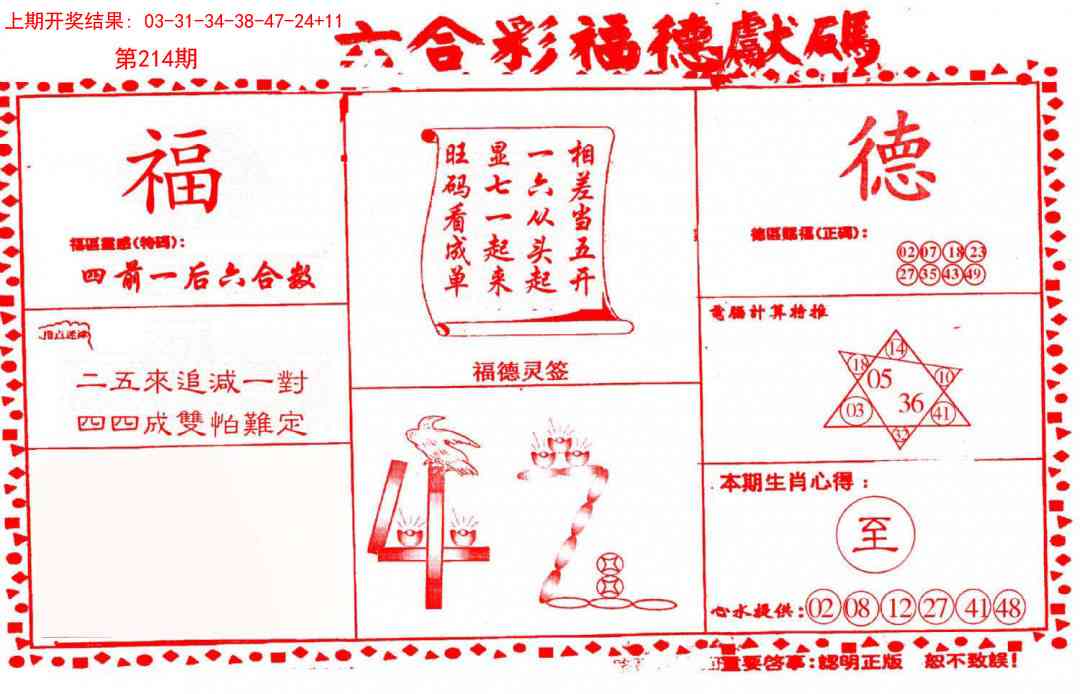 上期开奖结果：03-31-34-38-47-24+11
第214期
六合彩福德獻碼
福
福區靈感(特碼)：
四前一后六合数
指点迷津
二五來追減一對
四四成雙怕難定
相差当五开
一六从头起
显七一起来
旺码看成单
福德灵签
42
德
德區賜福(正碼)：
02 07 18 23
27 35 43 49
電腦計算特推
14
18 05 10
03 36 41
32
本期生肖心得：
至
心水提供：02 08 12 27 41 48
重要啓事：認明正版 恕不致誤！